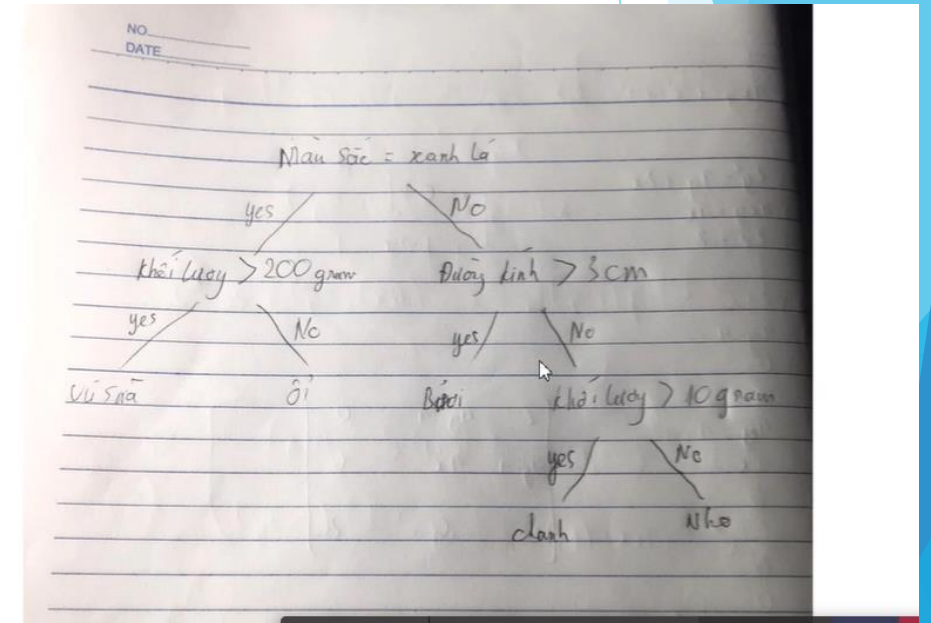 NO
DATE
Màu sắc = xanh lá
yes No
khối lượng > 200 gram Đường kính > 3 cm
yes No yes No
Vú Sữa ổi Bưởi khối lượng > 10 gram
yes No
chanh Nho